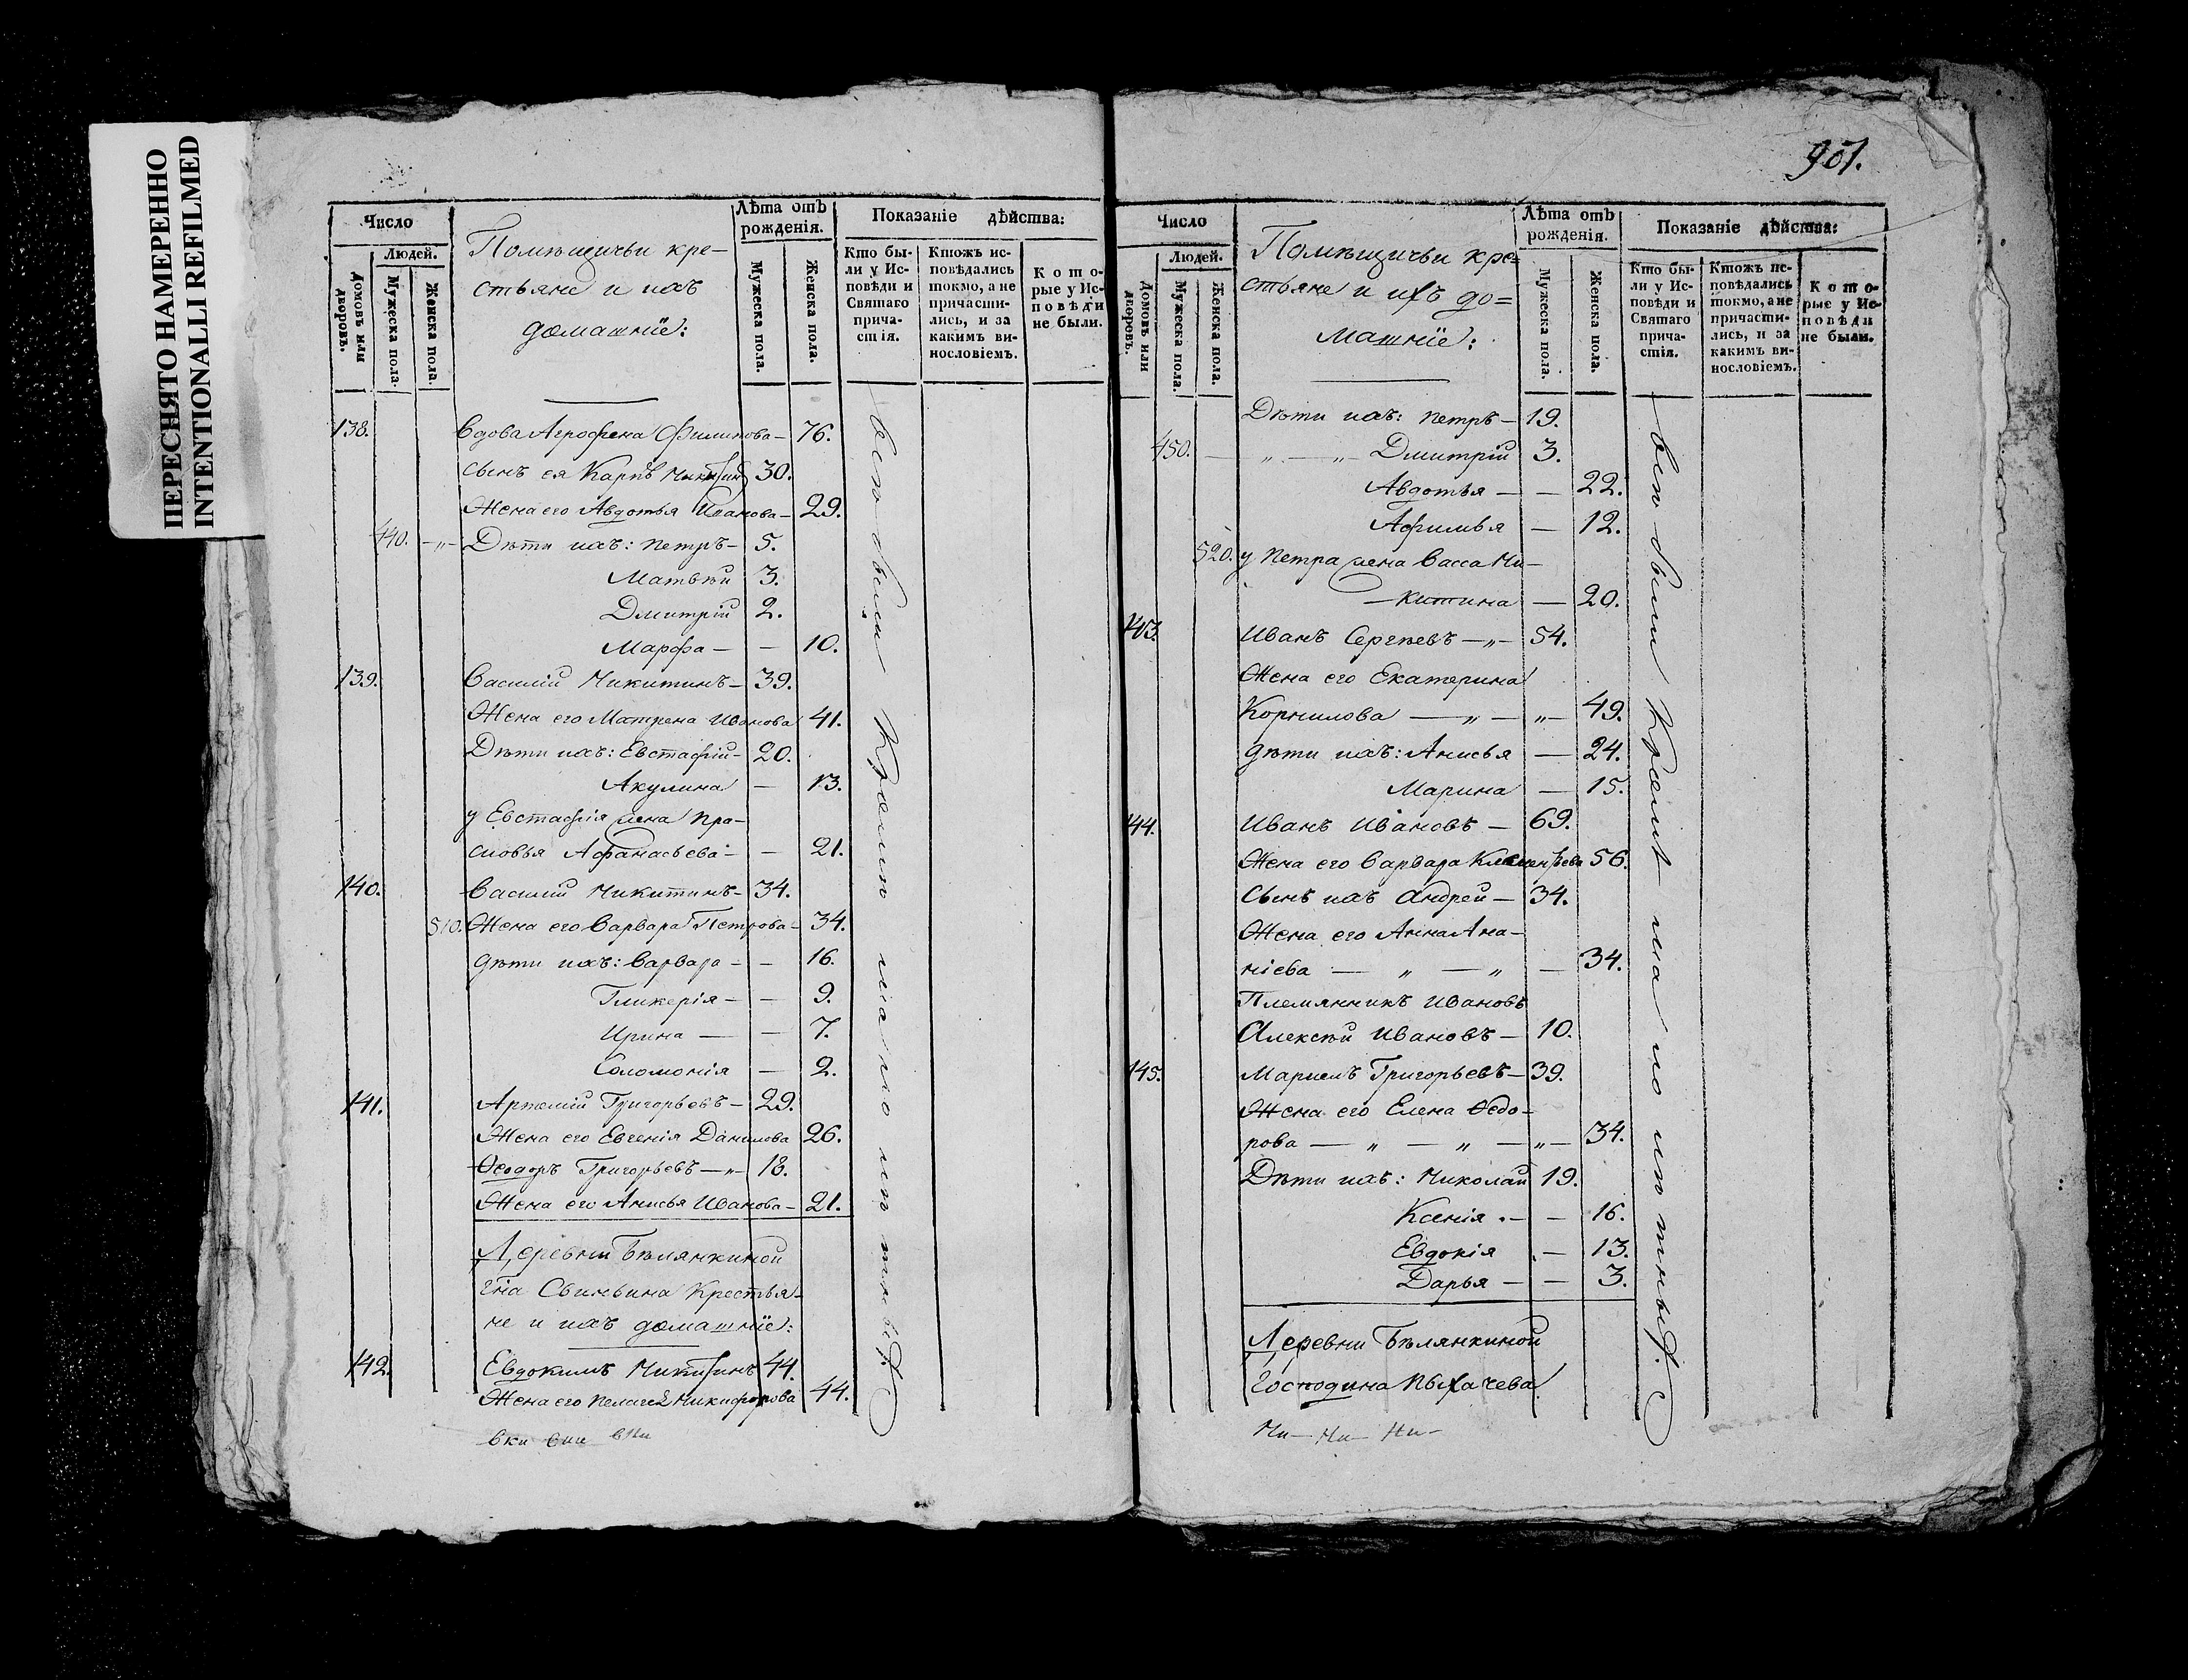 ПЕРЕСНЯТО НАМЕРЕННО
INTENTIONALLI REFILMED
Число
Людей.
Домовъ или дворовъ.
Мужеска пола.
Женска пола.
Помѣщичьи кре-
стьяне и ихъ
домашніе:
Лѣта отъ рожденія.
Мужеска пола.
Женска пола.
Показаніе дѣйства:
Кто бы-
ли у Ис-
повѣди и
Святаго
прича-
стія.
Ктожъ ис-
повѣдались
токмо, а не
причасти-
лись, и за
какимъ ви-
нословіемъ.
Кото-
рые у Ис-
повѣди
не были.
138. Вдова Агрофена Филипова — 76.
сынъ ея Карпъ Никитин 30.
Жена его Авдотья Иванова — 29.
440. —„— Дѣти ихъ: Петръ — 5.
Матвѣй 3.
Дмитрій 2.
Марфа — — 10.
139. Василій Никитинъ — 39.
Жена его Матрена Иванова 41.
Дѣти ихъ: Евстафій — 20.
Акулина — 13.
у Евстафія жена Пра-
сковья Афанасьева — — 21.
140. Василій Никитинъ — 34.
510. Жена его Варвара Петрова — 34.
дѣти ихъ: Варвара — — 16.
Гликерія — — 9.
Ирина — — 7.
Соломонія — 2.
141. Артемій Григорьевъ — 29.
Жена его Евгенія Данилова 26.
Ѳеодоръ Григорьевъ —„— 18.
Жена его Анисья Иванова — 21.
Деревни Бѣлянкиной
Гна Свиньина Крестья-
не и ихъ домашніе:
142. Евдокимъ Никитинъ 44.
Жена его Пелагея Никифорова 44.
901.
Число
Людей.
Домовъ или дворовъ.
Мужеска пола.
Женска пола.
Помѣщичьи кре=
стьяне и ихъ до=
машніе:
Лѣта отъ рожденія.
Мужеска пола.
Женска пола.
Показаніе дѣйства:
Кто бы-
ли у Ис-
повѣди и
Святаго
прича-
стія.
Ктожъ ис-
повѣдались
токмо, а не
причасти-
лись, и за
какимъ ви-
нословіемъ.
Кото-
рые у Ис-
повѣди
не были.
Дѣти ихъ: Петръ — 19.
450. — „ — „ — Дмитрій 3.
Авдотья — — 22.
Афимья — 12.
520. у Петра жена Васса Ни-
—китина — 20.
143. Иванъ Сергѣевъ —„— 54.
Жена его Екатерина
Корнилова — „ — „ — 49.
дѣти ихъ: Анисья — 24.
Марина — 15.
144. Иванъ Ивановъ — 69.
Жена его Варвара Клементьева 56.
Сынъ ихъ Андрей — 34.
Жена его Анна Ана-
ніева — „ — „ — 34.
Племянникъ Ивановъ
Алексѣй Ивановъ — 10.
145. Григорьевъ — 39.
Жена его Елена Ѳедо-
рова — „ — „ — „ — 34.
Дѣти ихъ: Николай 19.
Ксенія — — 16.
Евдокія — 13.
Дарья — — 3.
Деревни Бѣлянкиной
Господина Пыхачева
Ни — Ни — Ни —